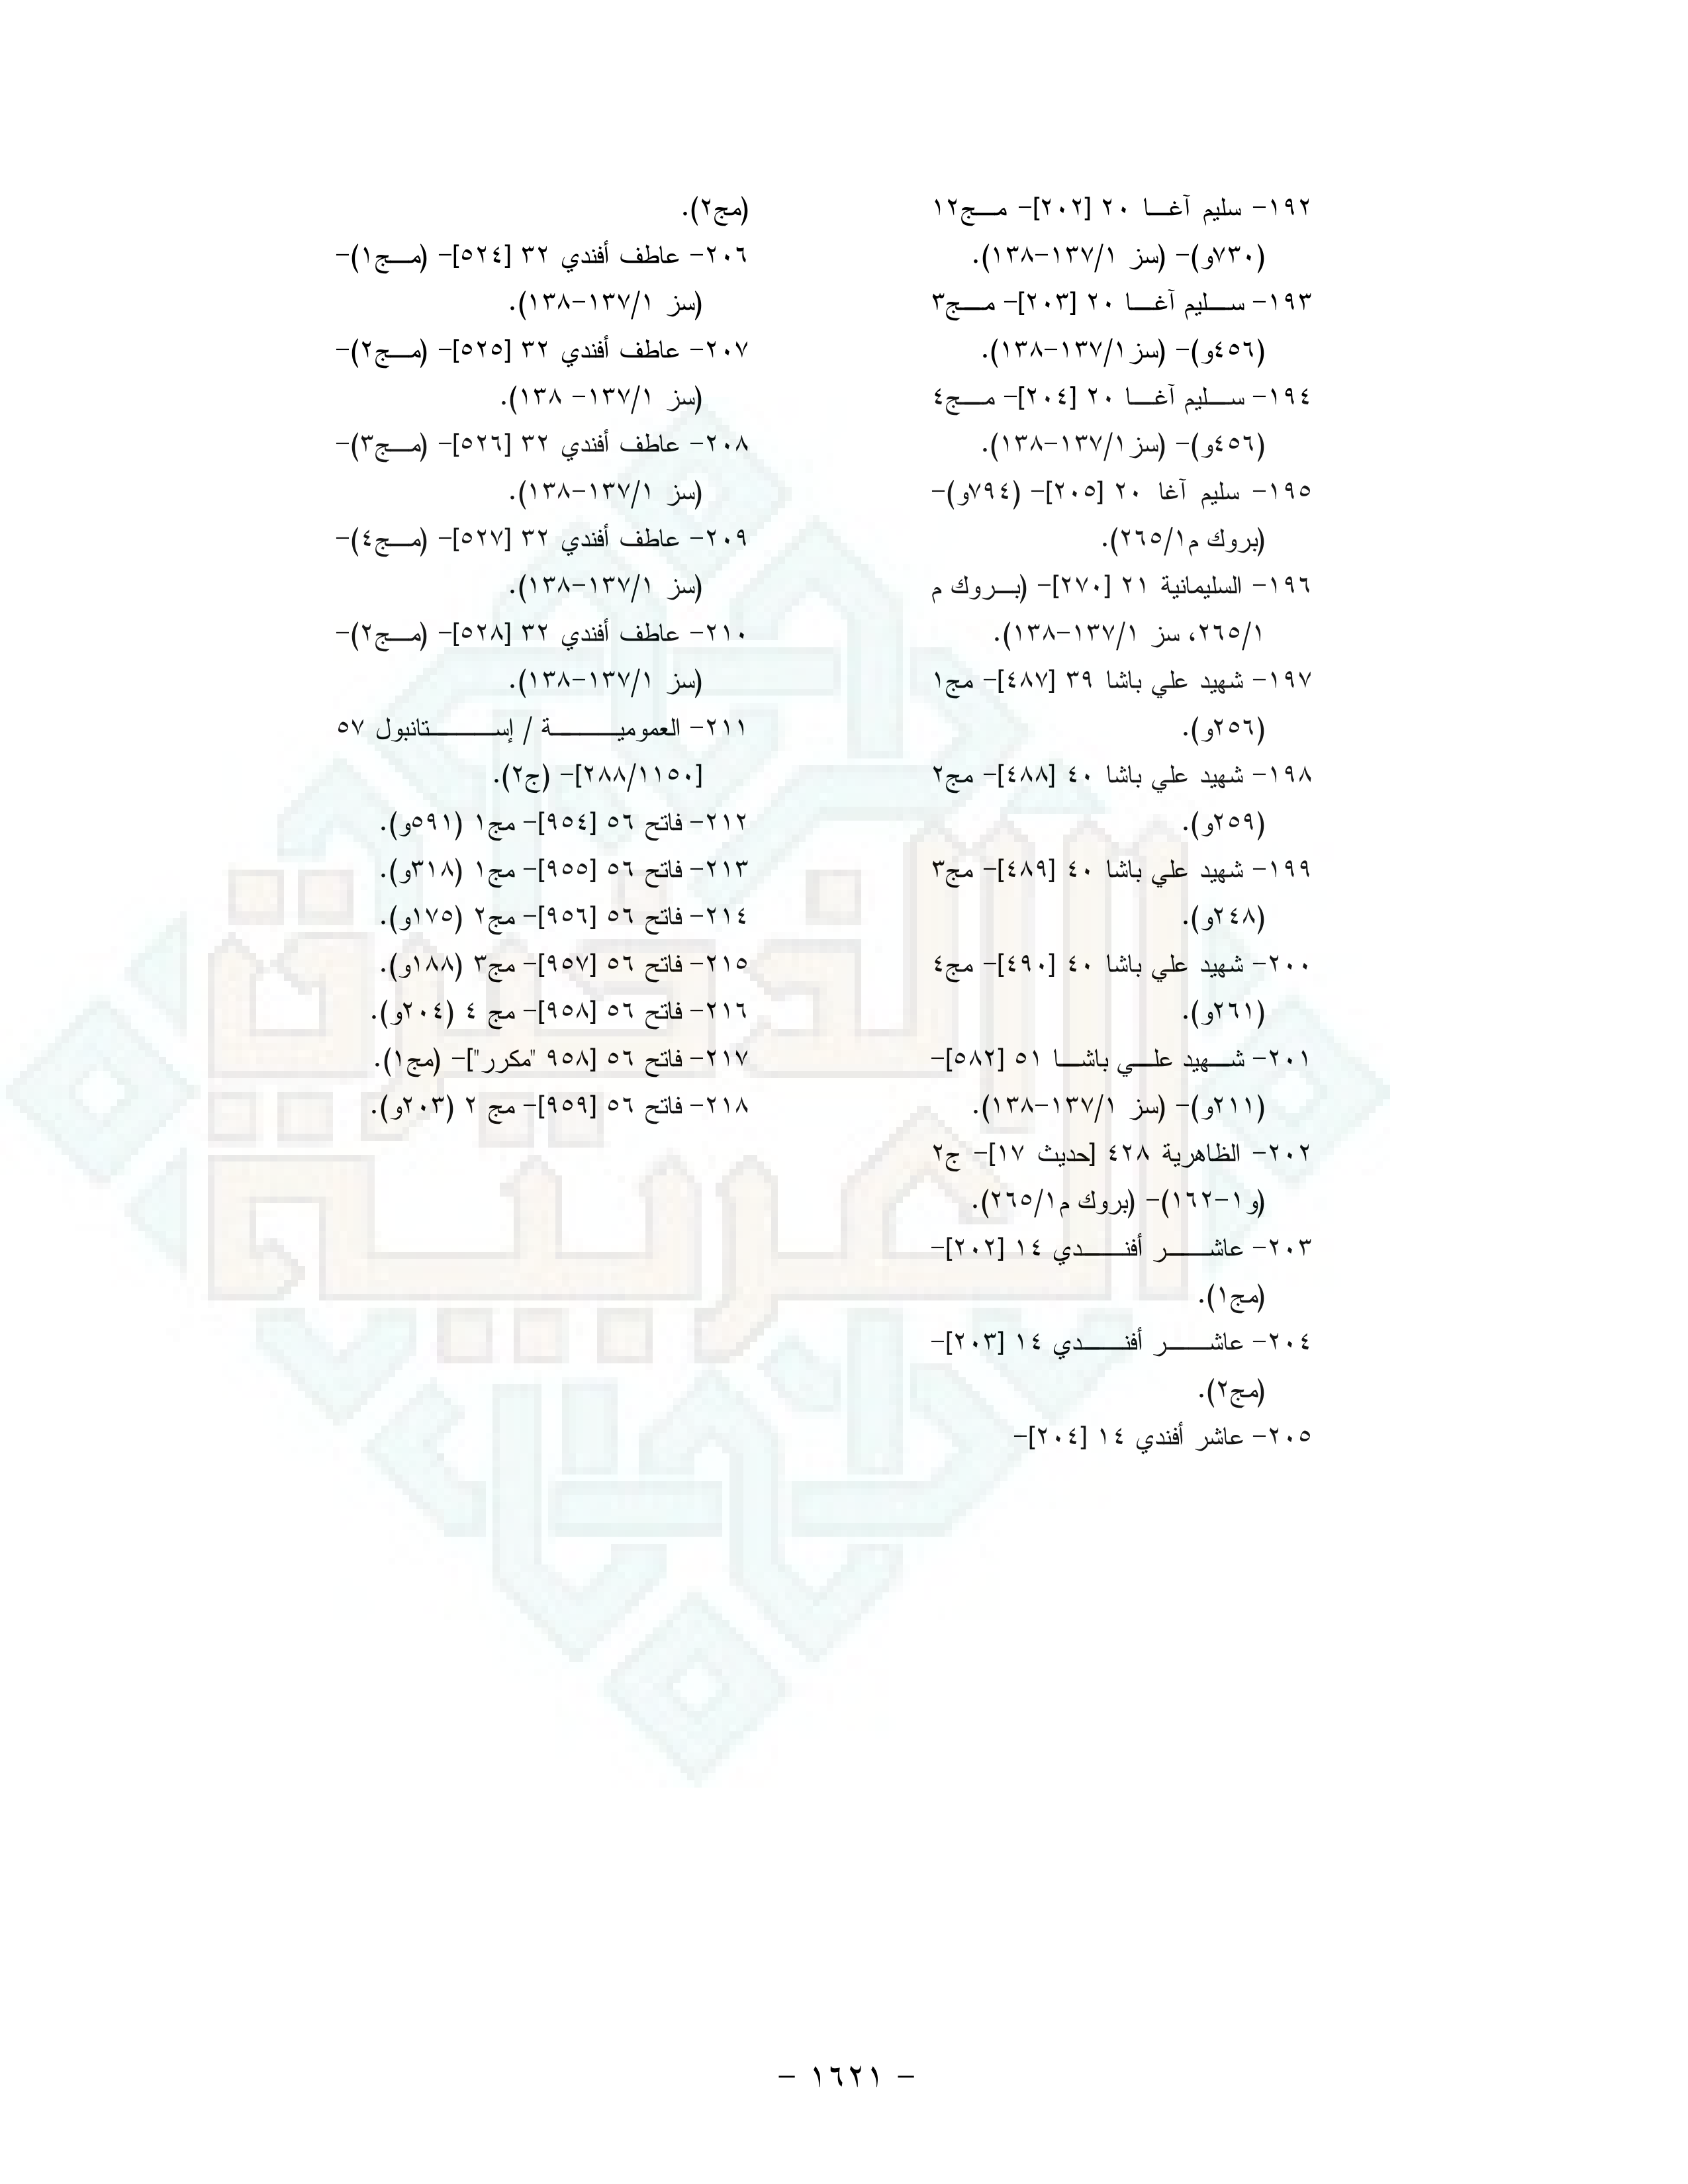 ١٩٢- سليم آغـــا ٢٠ [٢٠٢]- مـــج١٢
(٧٣٠و)- (سز ١٣٧/١-١٣٨).
١٩٣- ســـليم آغـــا ٢٠ [٢٠٣]- مـــج٣
(٤٥٦و)- (سز١٣٧/١-١٣٨).
١٩٤- ســـليم آغـــا ٢٠ [٢٠٤]- مـــج٤
(٤٥٦و)- (سز١٣٧/١-١٣٨).
١٩٥- سليم آغا ٢٠ [٢٠٥]- (٧٩٤و)-
(بروك م٢٦٥/١).
١٩٦- السليمانية ٢١ [٢٧٠]- (بـــروك م
٢٦٥/١، سز ١٣٧/١-١٣٨).
١٩٧- شهيد علي باشا ٣٩ [٤٨٧]- مج١
(٢٥٦و).
١٩٨- شهيد علي باشا ٤٠ [٤٨٨]- مج٢
(٢٥٩و).
١٩٩- شهيد علي باشا ٤٠ [٤٨٩]- مج٣
(٢٤٨و).
٢٠٠- شهيد علي باشا ٤٠ [٤٩٠]- مج٤
(٢٦١و).
٢٠١- شـــهيد علـــي باشـــا ٥١ [٥٨٢]-
(٢١١و)- (سز ١٣٧/١-١٣٨).
٢٠٢- الظاهرية ٤٢٨ [حديث ١٧]- ج٢
(و١-١٦٢)- (بروك م٢٦٥/١).
٢٠٣- عاشـــــر أفنـــــدي ١٤ [٢٠٢]-
(مج١).
٢٠٤- عاشـــــر أفنـــــدي ١٤ [٢٠٣]-
(مج٢).
٢٠٥- عاشر أفندي ١٤ [٢٠٤]-
(مج٢).
٢٠٦- عاطف أفندي ٣٢ [٥٢٤]- (مـــج١)-
(سز ١٣٧/١-١٣٨).
٢٠٧- عاطف أفندي ٣٢ [٥٢٥]- (مـــج٢)-
(سز ١٣٧/١- ١٣٨).
٢٠٨- عاطف أفندي ٣٢ [٥٢٦]- (مـــج٣)-
(سز ١٣٧/١-١٣٨).
٢٠٩- عاطف أفندي ٣٢ [٥٢٧]- (مـــج٤)-
(سز ١٣٧/١-١٣٨).
٢١٠- عاطف أفندي ٣٢ [٥٢٨]- (مـــج٢)-
(سز ١٣٧/١-١٣٨).
٢١١- العموميـــــــة / إســـــــتانبول ٥٧
[٢٨٨/١١٥٠]- (ج٢).
٢١٢- فاتح ٥٦ [٩٥٤]- مج١ (٥٩١و).
٢١٣- فاتح ٥٦ [٩٥٥]- مج١ (٣١٨و).
٢١٤- فاتح ٥٦ [٩٥٦]- مج٢ (١٧٥و).
٢١٥- فاتح ٥٦ [٩٥٧]- مج٣ (١٨٨و).
٢١٦- فاتح ٥٦ [٩٥٨]- مج ٤ (٢٠٤و).
٢١٧- فاتح ٥٦ [٩٥٨ "مكرر"]- (مج١).
٢١٨- فاتح ٥٦ [٩٥٩]- مج ٢ (٢٠٣و).
الذخيرة
العربية
- ١٦٢١ -